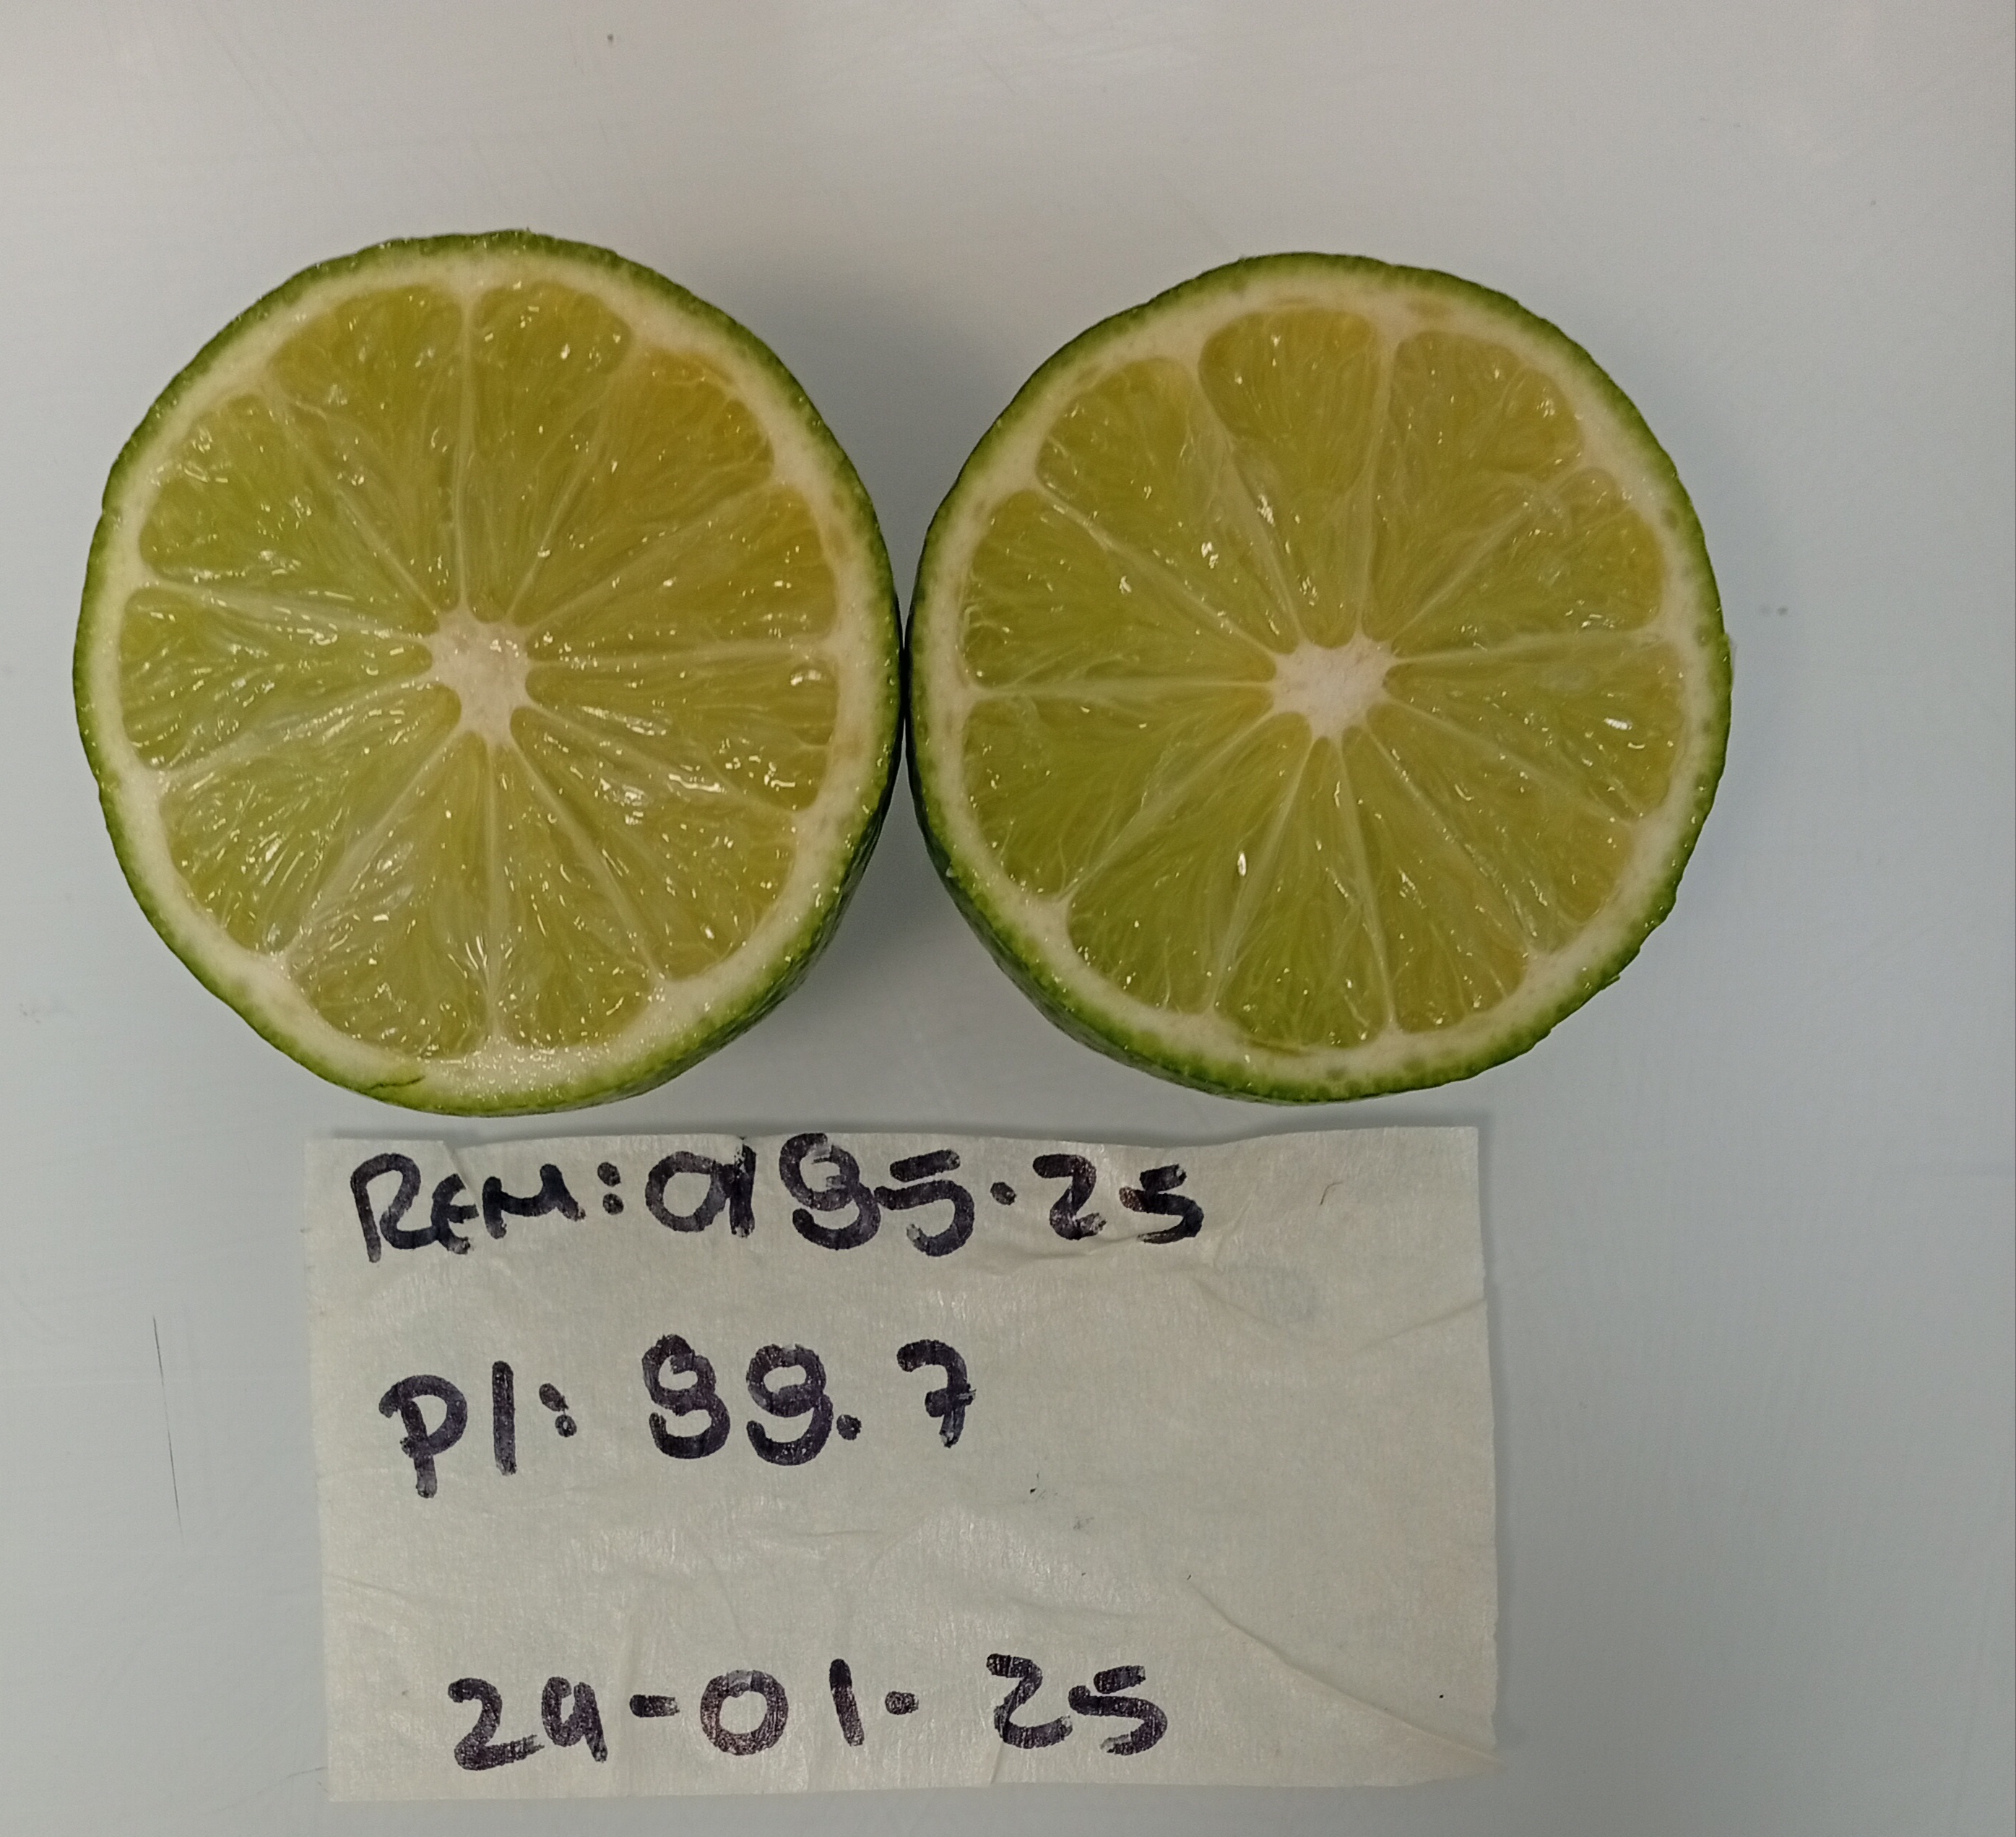 REM: 0195-25
P1: 99.7
24-01-25